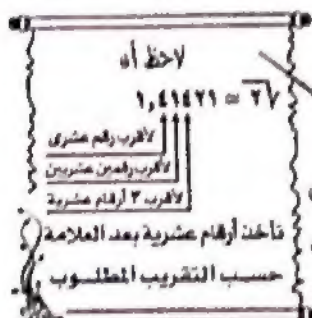 لاحظ أن
١,٤١٤٢١ ≃ √٢
لأقرب رقم عشرى
لأقرب رقمين عشريين
لأقرب ٣ أرقام عشرية
نأخذ أرقام عشرية بعد العلامة
حسب التقريب المطلوب